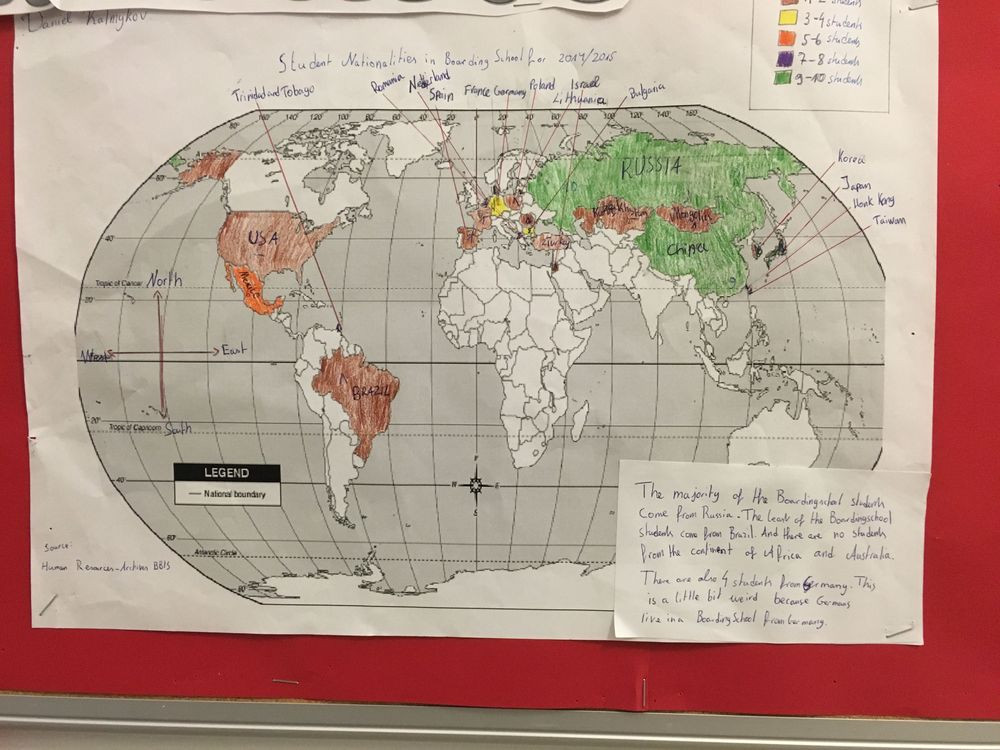 Daniel Kalmykov
students
3-4 students
5-6 students
7-8 students
9-10 students
Student Nationalities in Boarding School for 2014/2015
Trinidad and Tobago
Romania
Netherland
Spain
France
Germany
Poland
Israel
Lithuania
Bulgaria
Korea
Japan
Honk Kong
Taiwan
RUSSIA
10
Kazakhstan
Mongolia
China
9
Turkey
USA
BRAZIL
North
East
South
Tropic of Cancer
Tropic of Capricorn
Antarctic Circle
160 140 120 100 80 60 40 20 0 20 40 60 80 100 120 140 160
80°
60°
40°
20°
20°
40°
60°
80°
W E
LEGEND
National boundary
Source:
Human Resources-Archives BBIS
The majority of the Boardingschool students
come from Russia. The least of the Boardingschool
students come from Brazil. And there are no students
from the continent of Africa and Australia.
There are also 4 students from Germany. This
is a little bit weird because Germans
live in a BoardingSchool from Germany.